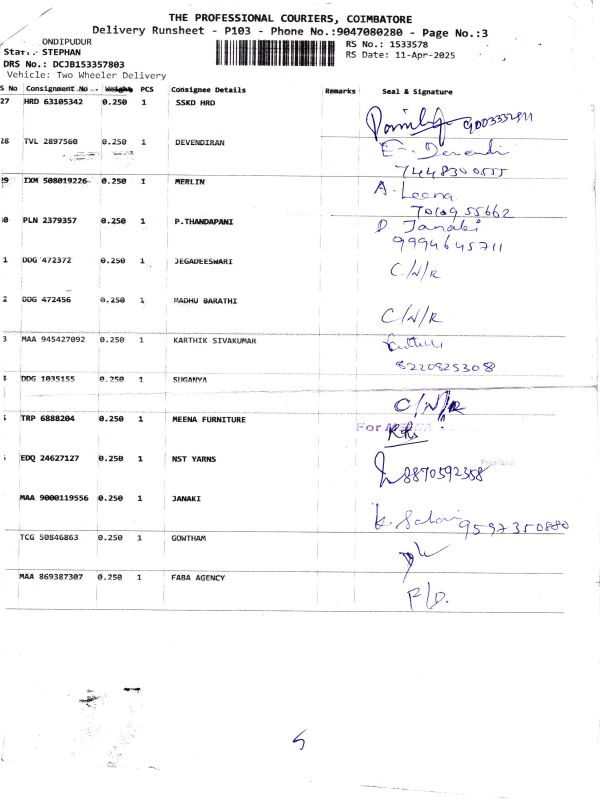 THE PROFESSIONAL COURIERS, COIMBATORE
Delivery Runsheet - P103 - Phone No.:9047080280 - Page No.:3
ONDIPUDUR
RS No.: 1533578
STEPHAN
RS Date: 11-Apr-2025
DRS No.: DCJB153357803
Vehicle: Two Wheeler Delivery
S No Consignment No Weight PCS Consignee Details Remarks Seal & Signature
27 HRD 63105342 0.250 1 SSKD HRD
28 TVL 2897560 0.250 1 DEVENDIRAN E. Devendi
7448300555
29 IXM 508019226 0.250 1 MERLIN A. Leena
7010955662
30 PLN 2379357 0.250 1 P.THANDAPANI D. Janaki
9994645711
1 DDG 472372 0.250 1 JEGADEESWARI C/N/R
2 DDG 472456 0.250 1 MADHU BARATHI C/N/R
3 MAA 945427092 0.250 1 KARTHIK SIVAKUMAR
8220825308
4 DDG 1035155 0.250 1 SUGANYA C/N/R
5 TRP 6888204 0.250 1 MEENA FURNITURE For
EDQ 24627127 0.250 1 NST YARNS 8870592358
MAA 9000119556 0.250 1 JANAKI 9597350880
TCG 50846863 0.250 1 GOWTHAM
MAA 869387307 0.250 1 FABA AGENCY F/D.